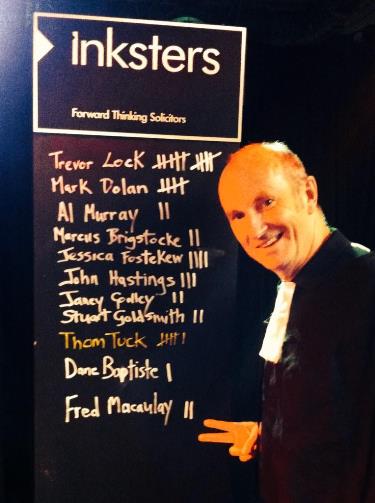 inksters
Forward Thinking Solicitors
Trevor Lock
Mark Dolan
Al Murray
Marcus Brigstocke
Jessica Fostekew
John Hastings
Janey Godley
Stuart Goldsmith
Thom Tuck
Dane Baptiste
Fred Macaulay